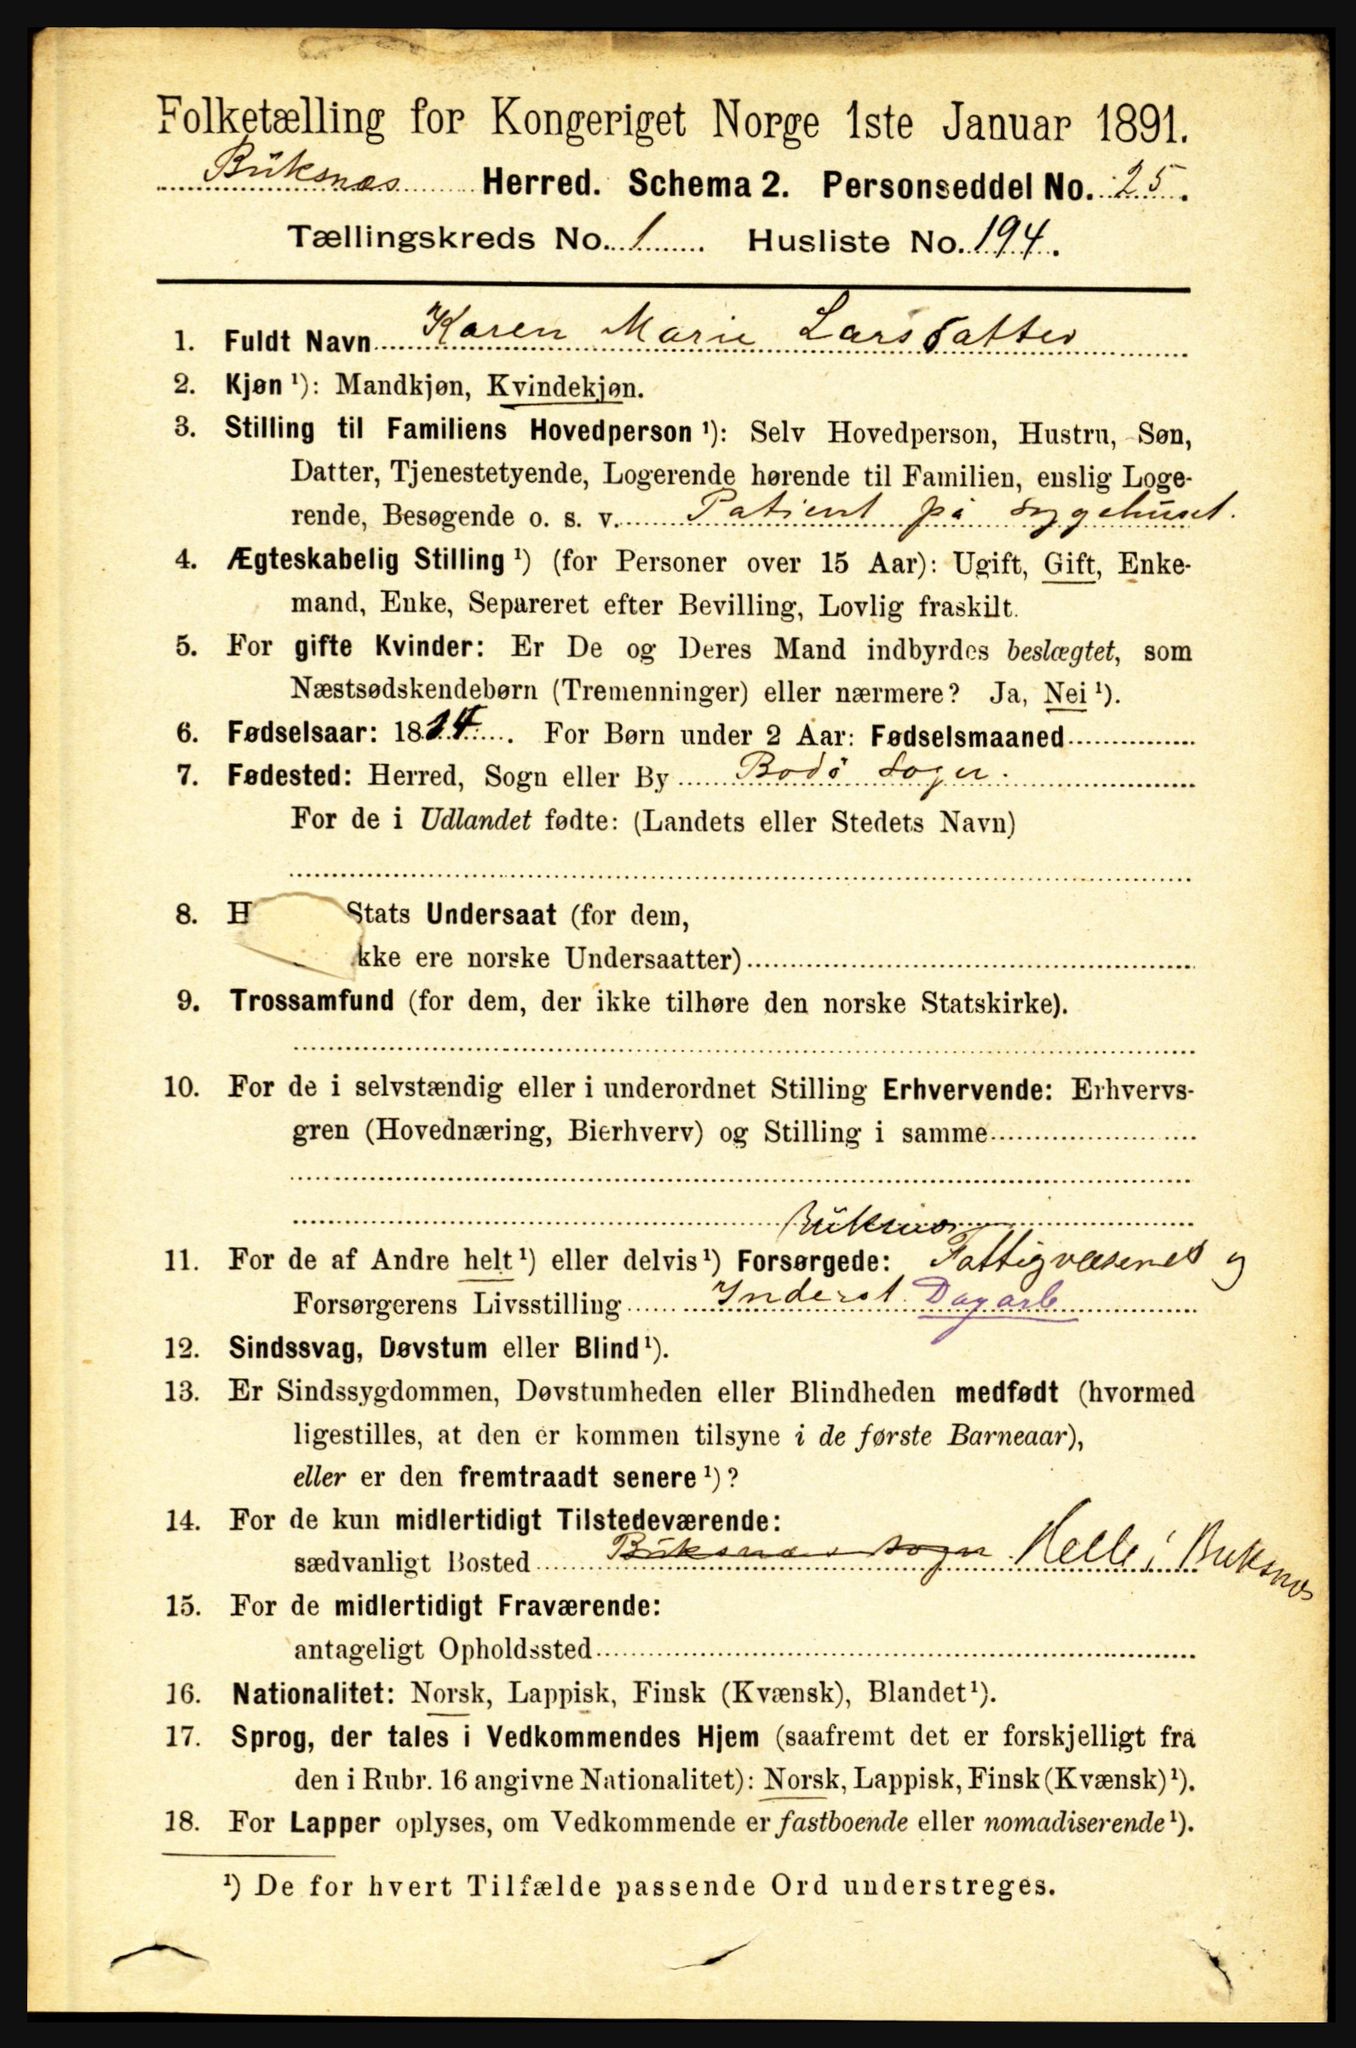 Folketælling for Kongeriget Norge 1ste Januar 1891.
Buksnæs Herred. Schema 2. Personseddel No. 25.
Tællingskreds No. 1 Husliste No. 194.
1. Fuldt Navn Karen Marie Larsdatter
2. Kjøn ¹): Mandkjøn, Kvindekjøn.
3. Stilling til Familiens Hovedperson ¹): Selv Hovedperson, Hustru, Søn,
Datter, Tjenestetyende, Logerende hørende til Familien, enslig Loge-
rende, Besøgende o. s. v. Patient på Sygehuset.
4. Ægteskabelig Stilling ¹) (for Personer over 15 Aar): Ugift, Gift, Enke-
mand, Enke, Separeret efter Bevilling, Lovlig fraskilt.
5. For gifte Kvinder: Er De og Deres Mand indbyrdes beslægtet, som
Næstsødskendebørn (Tremenninger) eller nærmere? Ja, Nei ¹).
6. Fødselsaar: 18 . For Børn under 2 Aar: Fødselsmaaned
7. Fødested: Herred, Sogn eller By Bodö Sogn.
For de i Udlandet fødte: (Landets eller Stedets Navn)
8. H Stats Undersaat (for dem,
kke ere norske Undersaatter)
9. Trossamfund (for dem, der ikke tilhøre den norske Statskirke).
10. For de i selvstændig eller i underordnet Stilling Erhvervende: Erhvervs-
gren (Hovednæring, Bierhverv) og Stilling i samme
Buksnæs
11. For de af Andre helt ¹) eller delvis ¹) Forsørgede: Fattigvæsenet og
Forsørgerens Livsstilling Inderst Dagarb
12. Sindssvag, Døvstum eller Blind ¹).
13. Er Sindssygdommen, Døvstumheden eller Blindheden medfødt (hvormed
ligestilles, at den er kommen tilsyne i de første Barneaar),
eller er den fremtraadt senere ¹)?
14. For de kun midlertidigt Tilstedeværende:
sædvanligt Bosted Buksnæs sogn Helle i Buksnæs
15. For de midlertidigt Fraværende:
antageligt Opholdssted
16. Nationalitet: Norsk, Lappisk, Finsk (Kvænsk), Blandet ¹).
17. Sprog, der tales i Vedkommendes Hjem (saafremt det er forskjelligt fra
den i Rubr. 16 angivne Nationalitet): Norsk, Lappisk, Finsk (Kvænsk) ¹).
18. For Lapper oplyses, om Vedkommende er fastboende eller nomadiserende ¹).
¹) De for hvert Tilfælde passende Ord understreges.